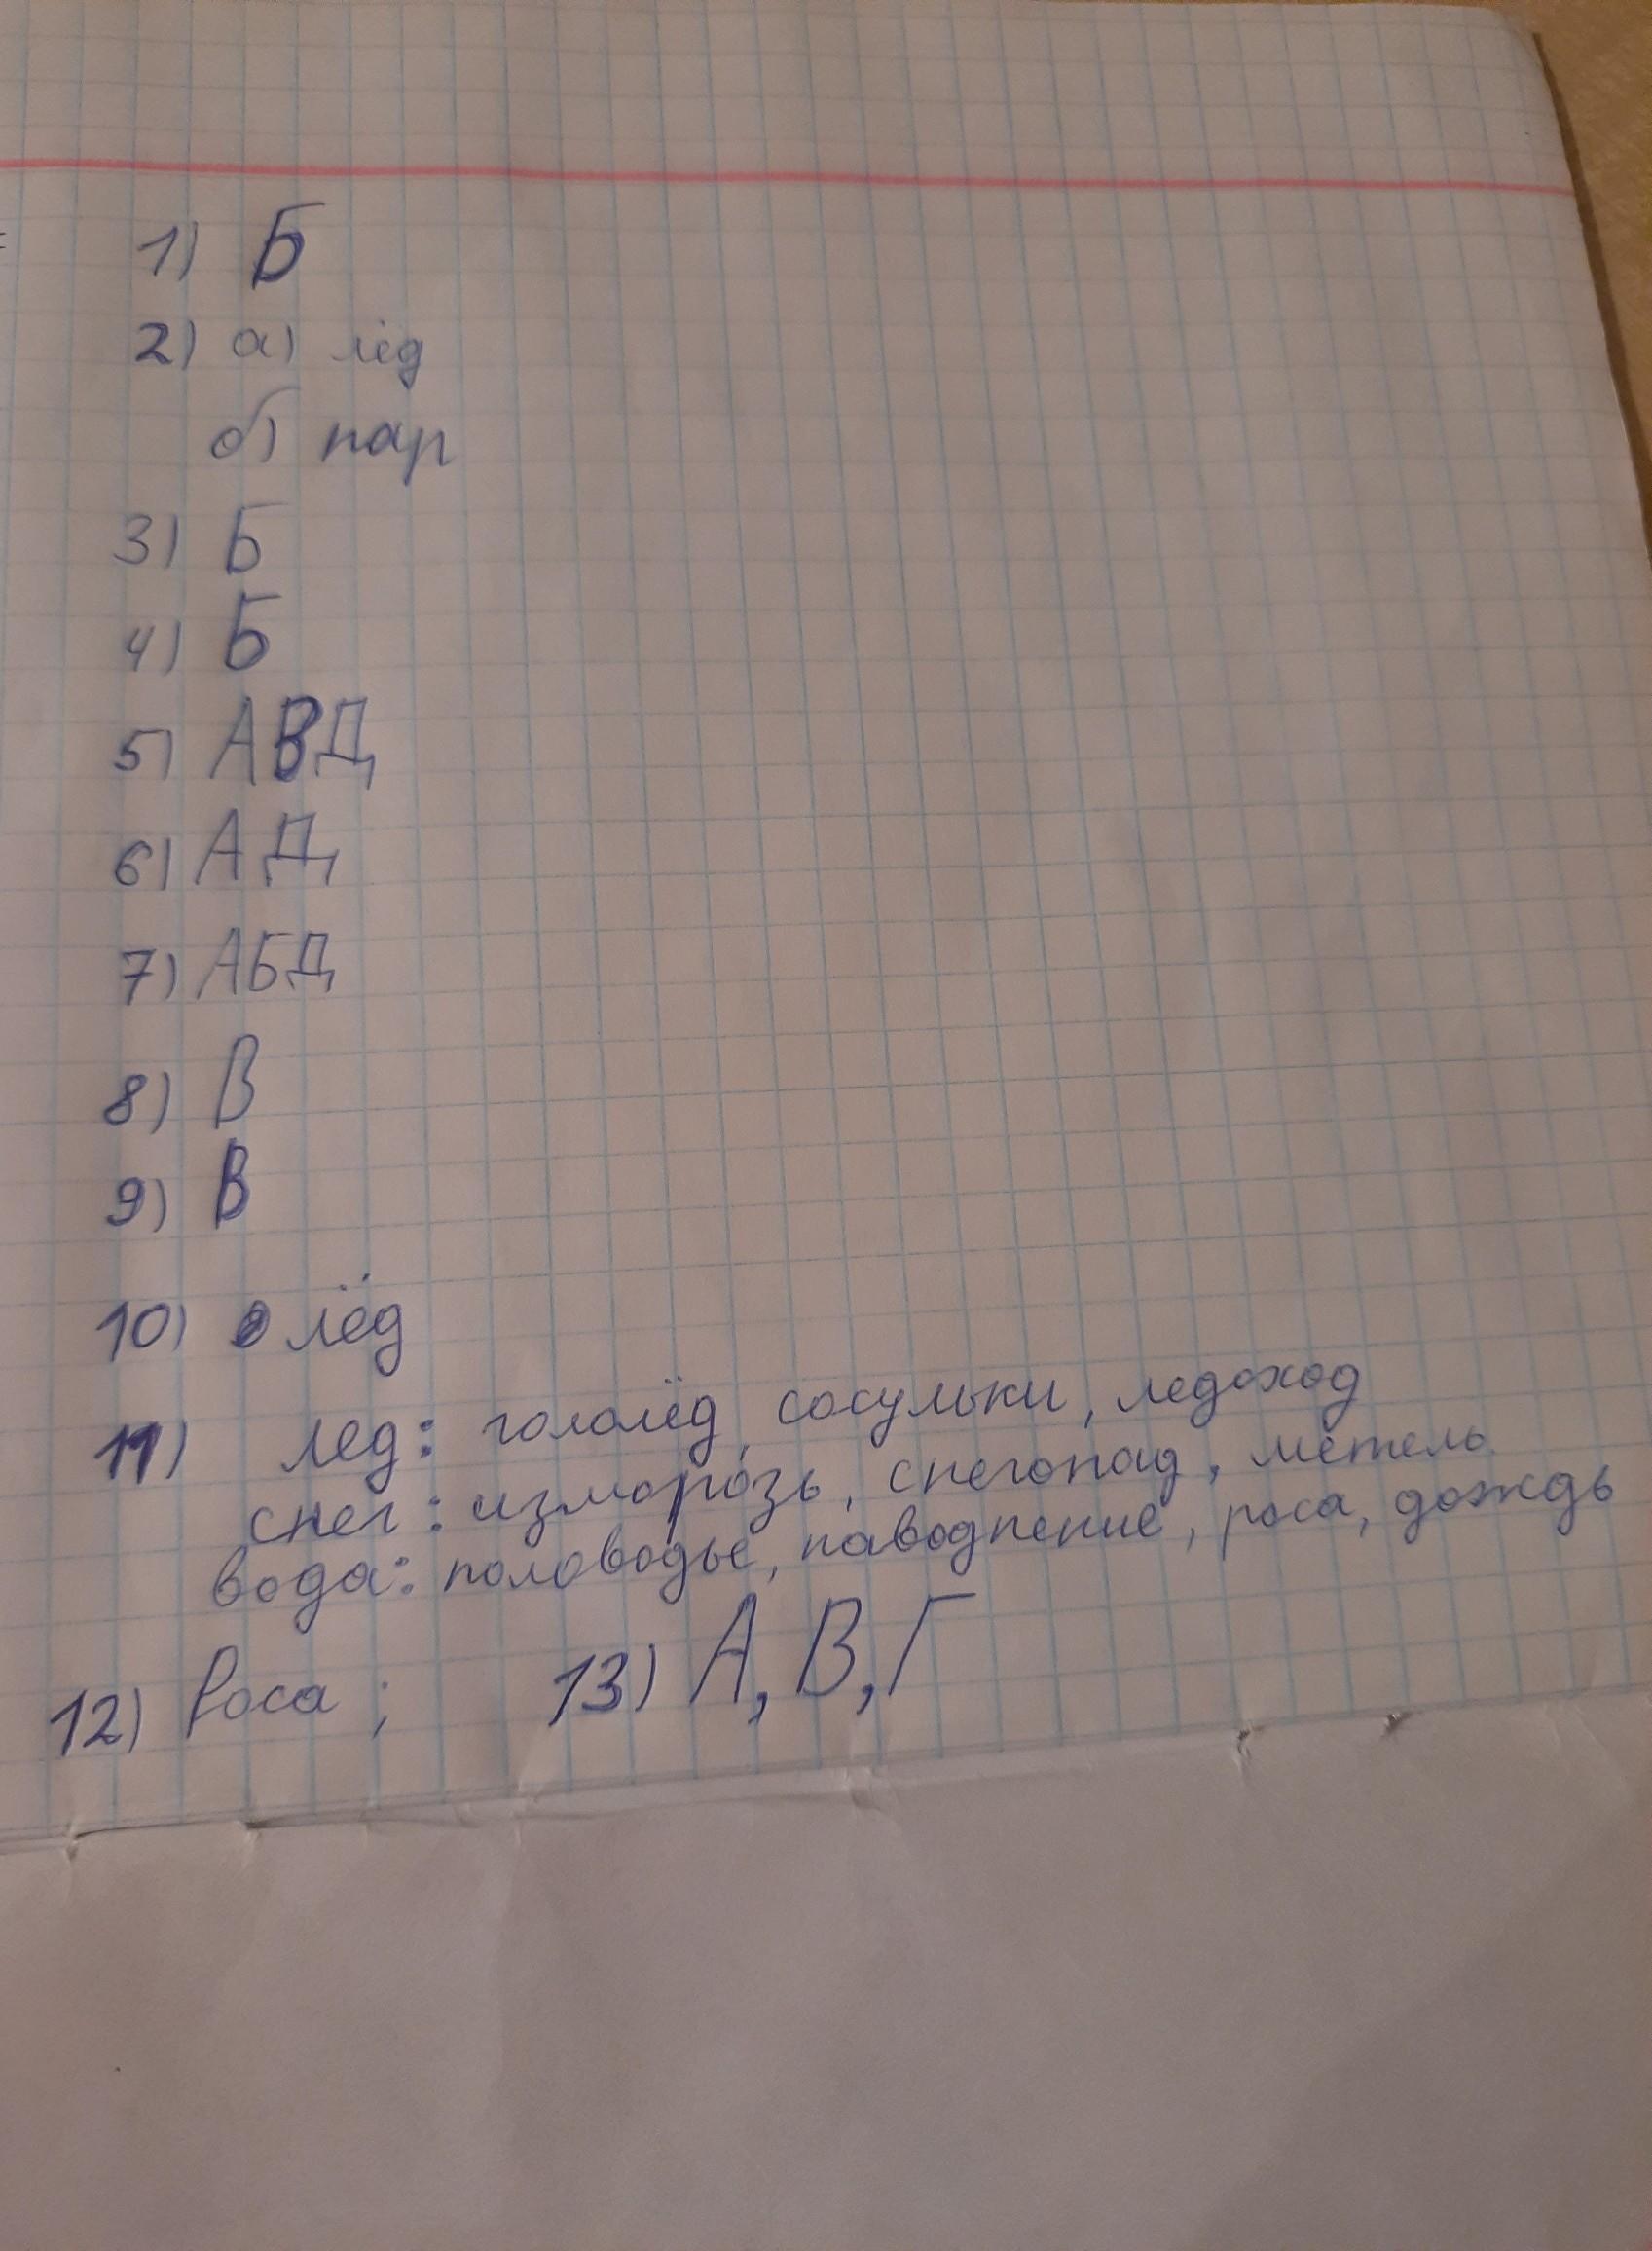 1) Б
2) а) лёд
б) пар
3) Б
4) Б
5) АВД
6) АД
7) АБД
8) В
9) В
10) лёд
11) лед: гололёд, сосульки, ледоход
снег: изморозь, снегопад, метель
вода: половодье, паводнение, роса, дождь
12) Роса ; 13) А, В, Г